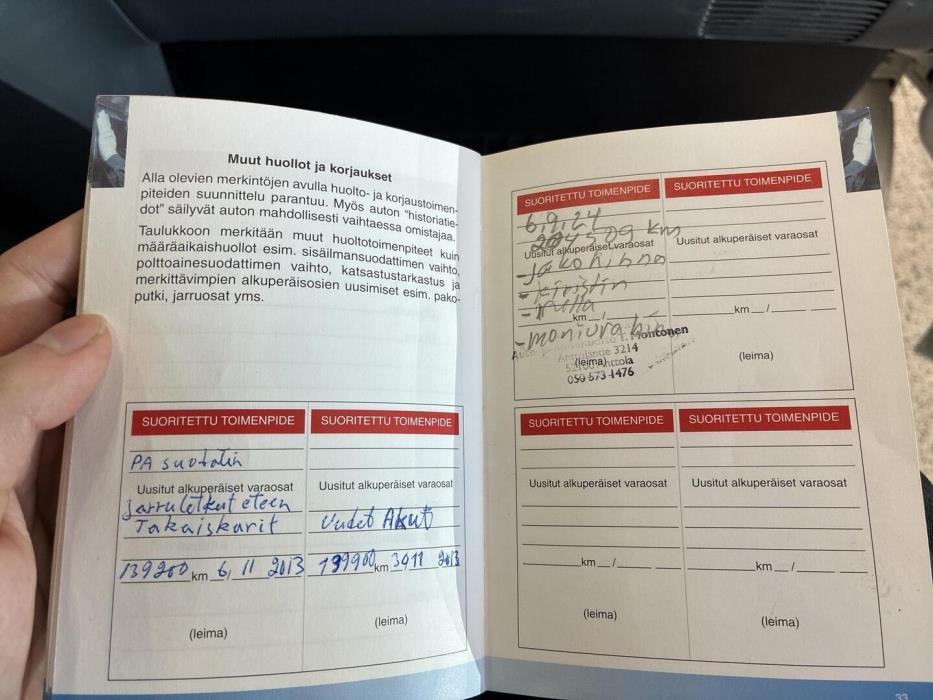 Muut huollot ja korjaukset
Alla olevien merkintöjen avulla huolto- ja korjaustoimen-
piteiden suunnittelu parantuu. Myös auton "historiatie-
dot" säilyvät auton mahdollisesti vaihtaessa omistajaa.
Taulukkoon merkitään muut huoltotoimenpiteet kuin
määräaikaishuollot esim. sisäilmansuodattimen vaihto,
polttoainesuodattimen vaihto, katsastustarkastus ja
merkittävimpien alkuperäisosien uusimiset esim. pako-
putki, jarruosat yms.
SUORITETTU TOIMENPIDE
PA suodatin
Uusitut alkuperäiset varaosat
Jarruletkut eteen
Takaiskarit
139200 km 6, 11 2013
(leima)
SUORITETTU TOIMENPIDE
Uusitut alkuperäiset varaosat
Uudet Akut
km 3011 2013
(leima)
SUORITETTU TOIMENPIDE
6.9.24
km
Uusitut alkuperäiset varaosat
Jakohihna
- kiristin
- rulla
km /
- moniurahihna
T. Montonen
Anttolantie 3214
(leima)
Anttola
050 573 1476
SUORITETTU TOIMENPIDE
Uusitut alkuperäiset varaosat
km /
(leima)
SUORITETTU TOIMENPIDE
Uusitut alkuperäiset varaosat
km /
(leima)
SUORITETTU TOIMENPIDE
Uusitut alkuperäiset varaosat
km /
(leima)
33